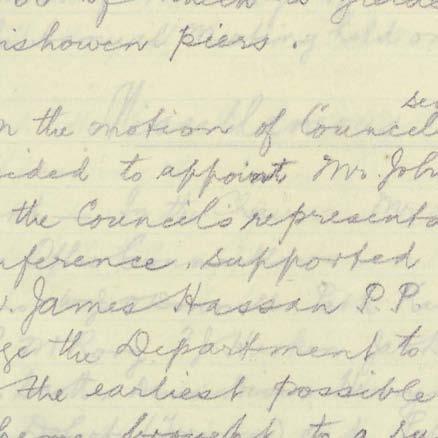 of which a
nishowen piers.
se
n the motion of Council
cided to appoint Mr. Joh
the Council's representa
nference, supported
. James Hassan P.P
ge the Department to
the earliest possible
brought to a